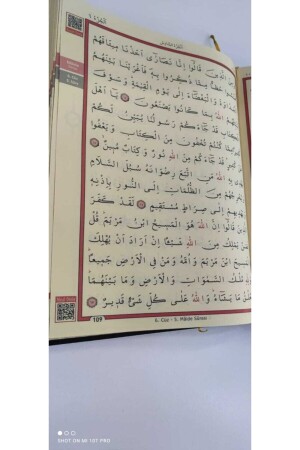 الَّذِينَ قَالُوا اِنَّا نَصَارٰى اَخَذْنَا مِيثَاقَهُمْ
حَظًّا مِمَّا ذُكِّرُوا بِهِ فَاَغْرَيْنَا بَيْنَهُمُ
وَالْبَغْضَاءَ اِلٰى يَوْمِ الْقِيٰمَةِ وَسَوْفَ
اللّٰهُ بِمَا كَانُوا يَصْنَعُونَ يَا اَهْلَ
قَدْ جَاءَكُمْ رَسُولُنَا يُبَيِّنُ لَكُمْ
مِمَّا كُنْتُمْ تُخْفُونَ مِنَ الْكِتَابِ وَيَعْفُوا
قَدْ جَاءَكُمْ مِنَ اللّٰهِ نُورٌ وَكِتَابٌ مُبِينٌ
اللّٰهُ مَنِ اتَّبَعَ رِضْوَانَهُ سُبُلَ السَّلَامِ
مِنَ الظُّلُمَاتِ اِلَى النُّورِ بِاِذْنِهِ
اِلٰى صِرَاطٍ مُسْتَقِيمٍ لَقَدْ كَفَرَ
قَالُوا اِنَّ اللّٰهَ هُوَ الْمَسِيحُ ابْنُ مَرْيَمَ قُلْ
يَمْلِكُ مِنَ اللّٰهِ شَيْئًا اِنْ اَرَادَ اَنْ يُهْلِكَ
ابْنَ مَرْيَمَ وَاُمَّهُ وَمَنْ فِي الْاَرْضِ جَمِيعًا
مُلْكُ السَّمٰوَاتِ وَالْاَرْضِ وَمَا بَيْنَهُمَا
مَا يَشَاءُ وَاللّٰهُ عَلٰى كُلِّ شَيْءٍ قَدِيرٌ
109
6. Cüz - 5. Mâide Sûresi
SHOT ON MI 10T PRO